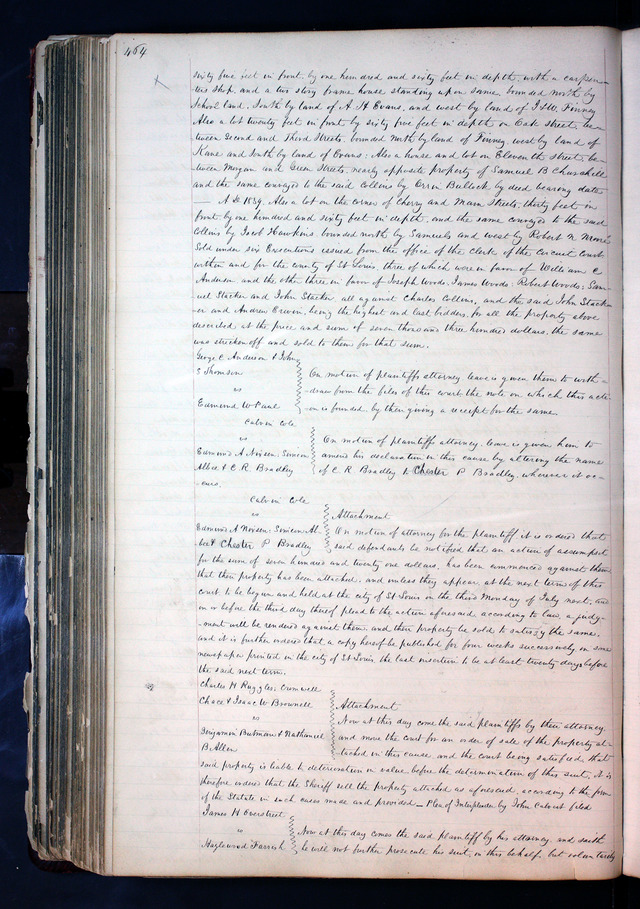 464
sixty five feet in front, by one hundred and sixty feet in depth, with a carpen-
ters shop, and a two story frame house standing upon same, bounded north by
School land, South by land of A. H Evans, and west by land of Finney
Also a lot twenty feet in front by sixty five feet in depth on Oak street, be-
tween Second and Third Streets, bounded north by land of Finney, west by land of
Kane and South by land of Evans: Also a house and lot on Eleventh street, be-
tween Morgan and Green Streets, nearly opposite property of Samuel B Churchill
and the same conveyed to the said Collins by Orrin Bullock by deed bearing date
— A.D. 1839. Also a lot on the corner of Cherry and Main Streets, thirty feet in
front by one hundred and sixty feet in depth, and the same conveyed to the said
Collins by Jacob Hawkins bounded north by Samuels and west by Robert N Moore
Sold under six Executions issued from the office of the clerk of the circuit court
within and for the county of St Louis, three of which were in favor of William C
Anderson and the other three in favor of Joseph Woods, James Woods: Robert Woods: Sam-
uel Stacker and John Stacker all against Charles Collins, and the said John Stack-
er and Andrew Erwin, being the highest and last bidders, for all the property above
described at the price and sum of seven thousand three hundred dollars, the same
was stricken off and sold to them for that sum.
George C Anderson & John
S Thomson
vs
Edmund W Paul
On motion of plaintiffs attorney leave is given them to with-
-draw from the files of this court the note on which this acti-
-on is founded, by their giving a receipt for the same.
Calvin Cole
vs
Edmund A Noisen: Simeon
Albee & C R Bradley
On motion of plaintiffs attorney, leave is given him to
amend his declaration in this cause by altering the name
of C R Bradley to Chester P Bradley, wherever it oc-
curs.
Calvin Cole
vs
Edmund A Noisen: Simeon Al-
bee & Chester P Bradley
Attachment
On motion of attorney for the plaintiff it is ordered that
said defendants be notified that an action of assumpsit
for the sum of seven hundred and twenty one dollars, has been commenced against them
that their property has been attached, and unless they appear at the next term of this
court to be begun and held at the city of St Louis on the third Monday of July next, and
on or before the third day thereof plead to the action aforesaid according to law, a judg-
-ment will be rendered against them, and their property be sold to satisfy the same.
and it is further ordered that a copy hereof be published for four weeks successively in some
newspaper printed in the city of St Louis the last insertion to be at least twenty days before
the said next term.
Charles H Ruggles: Cromwell
Chace & Isaac W Brownell
vs
Benjamin Butman & Nathaniel
B Allen
Attachment
Now at this day come the said plaintiffs by their attorney
and move the court for an order of sale of the property at-
-tached in this cause, and the court being satisfied that
said property is liable to deterioration in value, before the determination of this suit, it is
therefore ordered that the Sheriff sell the property attached as aforesaid, according to the form
of the Statute in such cases made and provided — Plea of Interpleader by John Calvert filed
James H Overstreet
vs
Hazlewood Farrish
Now at this day comes the said plaintiff by his attorney, and saith
he will not further prosecute his suit, in this behalf, but voluntarily